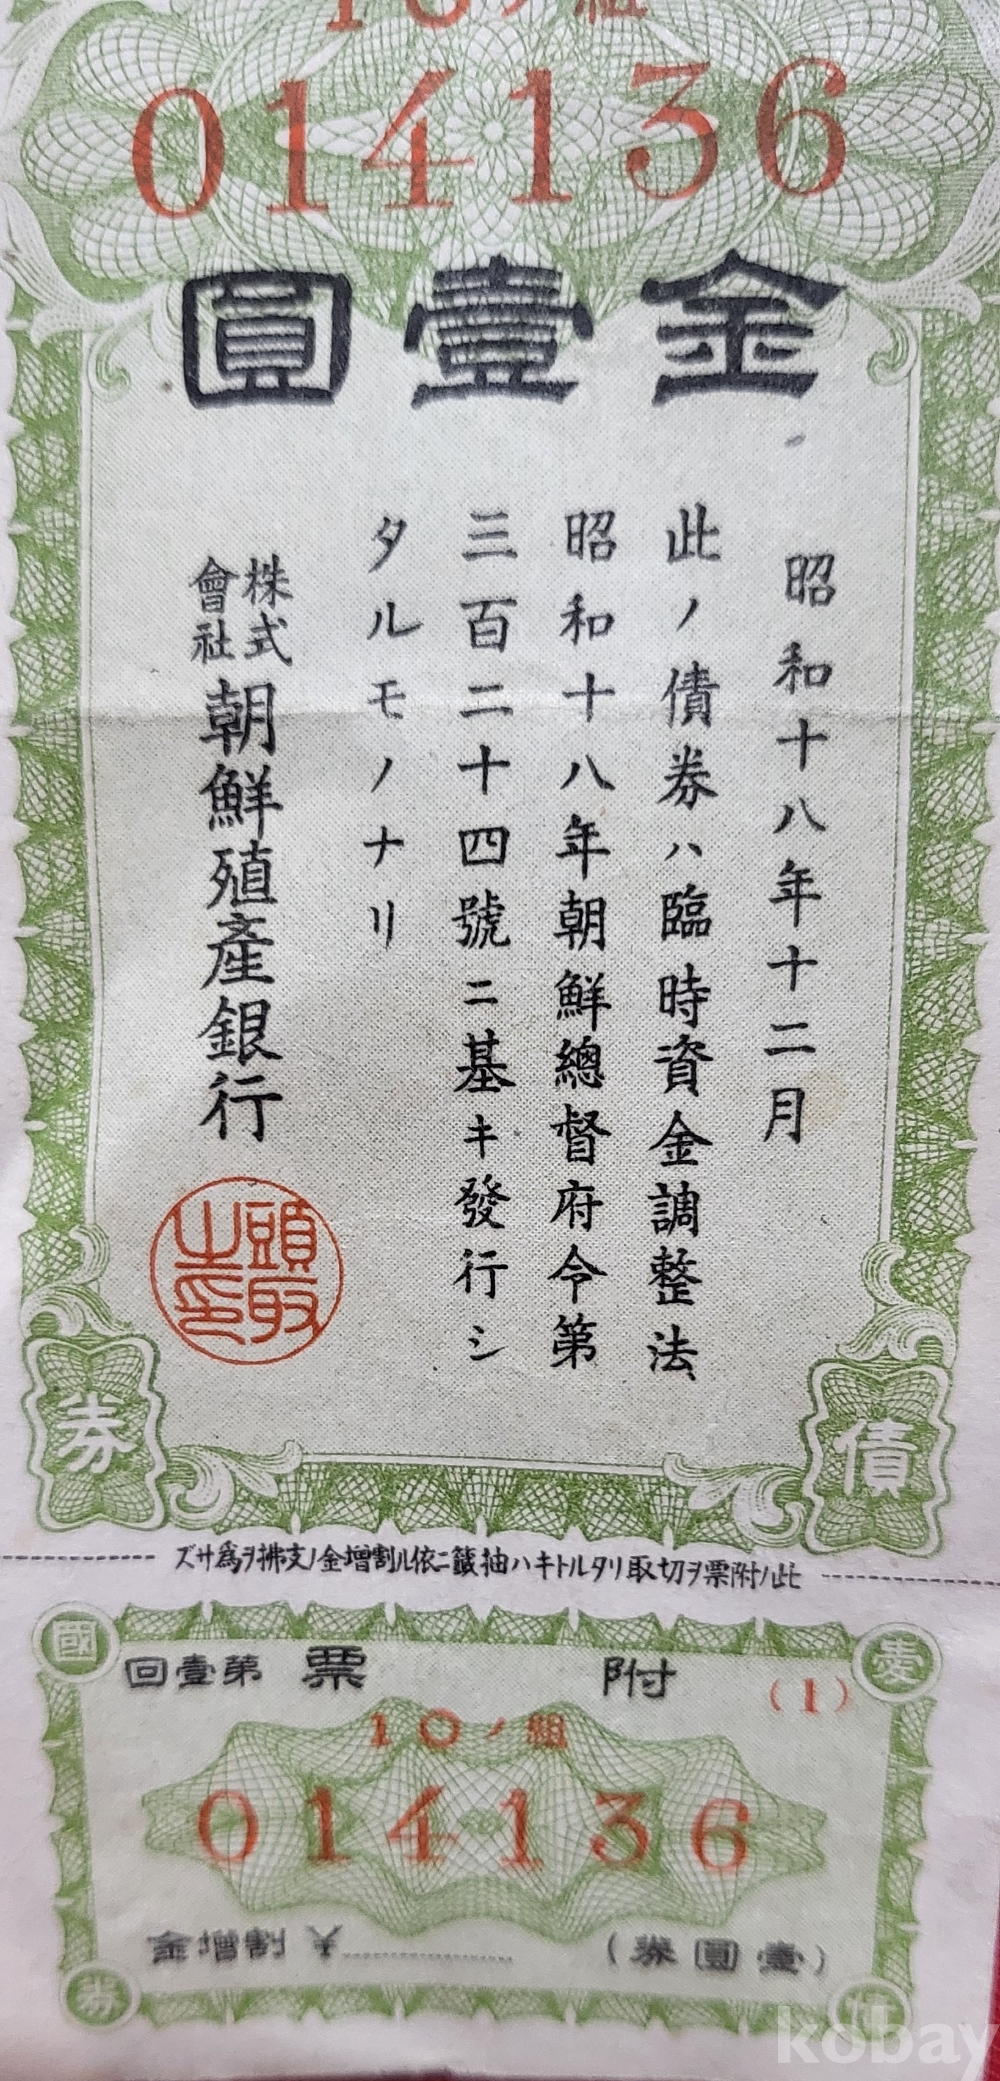 10ノ組
014136
金壹圓
昭和十八年十二月
此ノ債券ハ臨時資金調整法
昭和十八年朝鮮總督府令第
三百二十四號ニ基キ發行シ
タルモノナリ
株式會社朝鮮殖產銀行
頭取之印
債
券
此ノ附票ヲ切取リタルトキハ抽籤ニ依ル割增金ノ支拂ヲ爲サズ
愛
國
附票 第壹回
(1)
10ノ組
014136
(壹圓券)
割增金
債
券
kobay